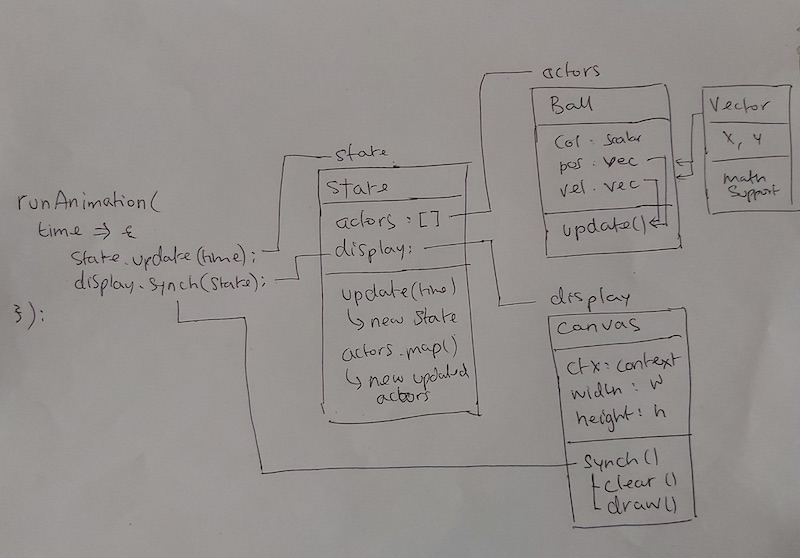 runAnimation(
time => {
state.update(time);
display.synch(state);
});
state
state
actors : []
display:
update(time)
↳ new state
actors.map()
↳ new updated
actors
actors
Ball
Col : scalar
pos : vec
vel : vec
update()
Vector
x, y
math
support
display
Canvas
ctx : context
width : w
height : h
synch()
clear()
draw()